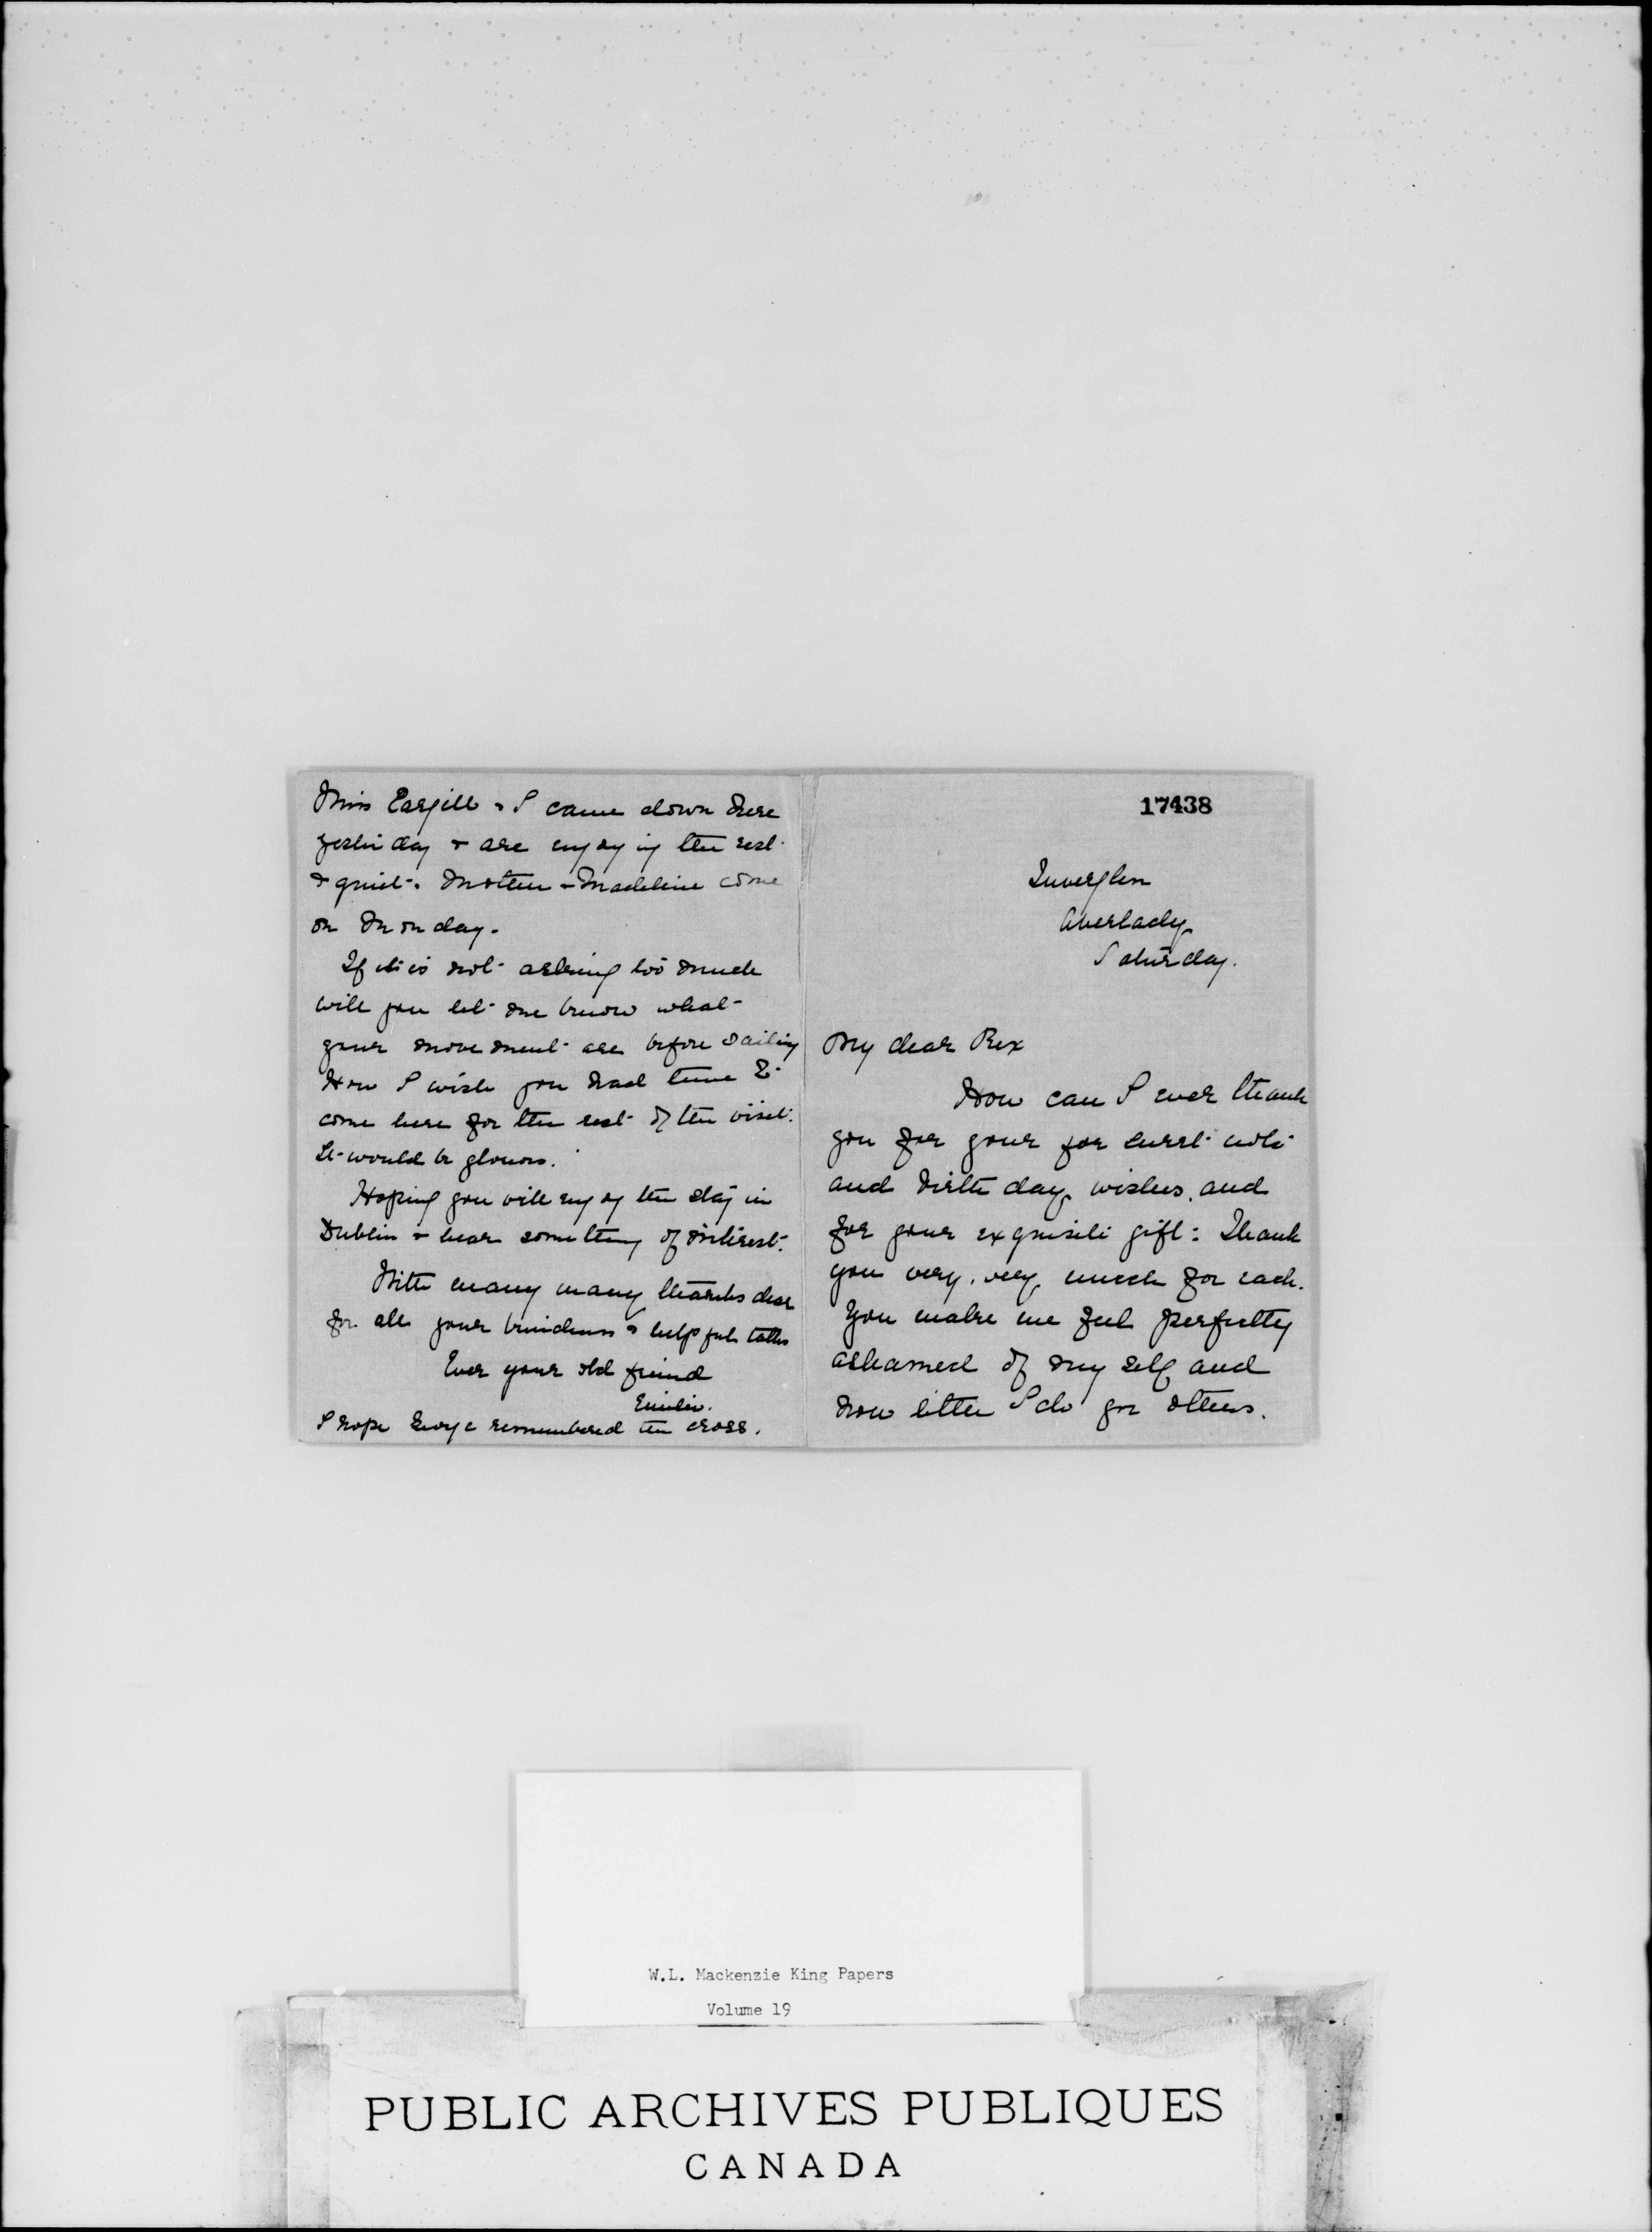 17438
Inverglen
Aberlady
Saturday.
My dear Rex
How can I ever thank
you for your for sweet note
and birthday wishes, and
for your exquisite gift: Thank
you very, very much for each.
You make me feel perfectly
ashamed of my self and
how little I do for others.
Miss & I came down here
yesterday & are enjoying the rest
& quiet. Mother & Madeline come
on Monday.
If it is not asking too much
will you let me know what
your movement are before sailing
How I wish you had time to
come here for the rest of the visit.
It would be glorious.
Hoping you will enjoy the stay in
Dublin & hear something of interest.
With many many thanks dear
for all your kindness & helpful talks
Ever your old friend
I hope George remembered the cross.
W.L. Mackenzie King Papers
Volume 19
PUBLIC ARCHIVES PUBLIQUES
CANADA